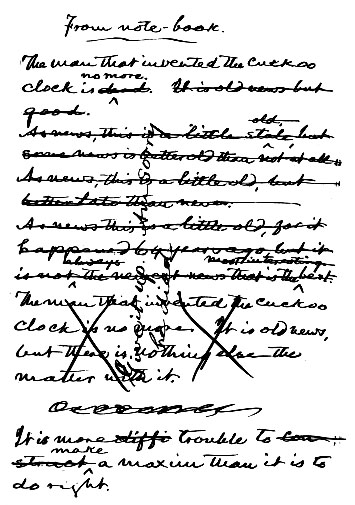 From note-book.
The man that invented the cuckoo
no more.
clock is dead. It is old news but
good.
old,
As news, this is a little stale, but
some news is better old than not at all.
As news, this is a little old, but
better late than never.
As news this is a little old, for it
happened 64 years ago, but it
always most interesting
is not the newest news that is the best.
The man that invented the cuckoo
clock is no more. It is old news,
but there is nothing else the
matter with it.
It is more diffi trouble to con-
make
struct a maxim than it is to
do right.